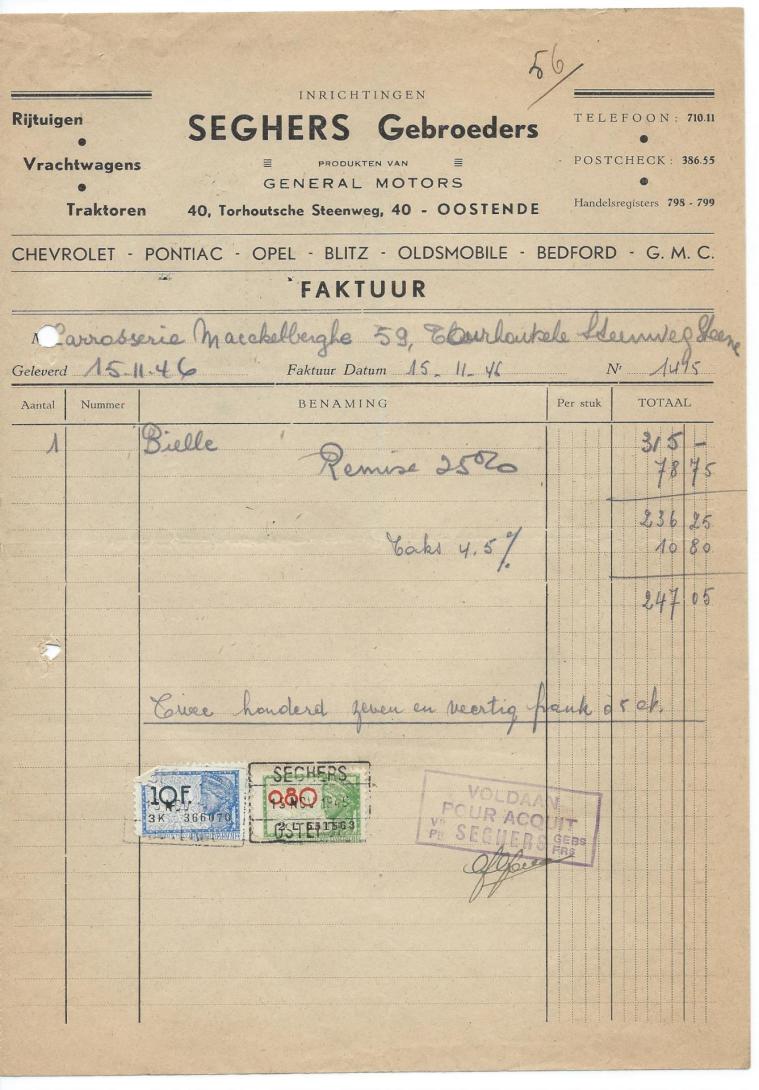 56/
INRICHTINGEN
SEGHERS Gebroeders
PRODUKTEN VAN
GENERAL MOTORS
40, Torhoutsche Steenweg, 40 - OOSTENDE
Rijtuigen
Vrachtwagens
Traktoren
TELEFOON: 710.11
POSTCHECK: 386.55
Handelsregisters 798 - 799
CHEVROLET - PONTIAC - OPEL - BLITZ - OLDSMOBILE - BEDFORD - G. M. C.
FAKTUUR
M Carrosserie Maeckelberghe 59, Steenweg Steene
Geleverd 15-11-46 Faktuur Datum 15-11-46 Nr 1495
Aantal Nummer BENAMING Per stuk TOTAAL
1 Bielle 315 -
Remise 25% 78 75
236 25
Taks 4.5% 10 80
247 05
Twee honderd zeven en veertig frank 05 ct.
10F.
3K 366070
SEGHERS
080
15 NOV 1946
2L 551563
VOLDAAN
POUR ACQUIT
Vr SEGHERS GEBS
Pr FRS